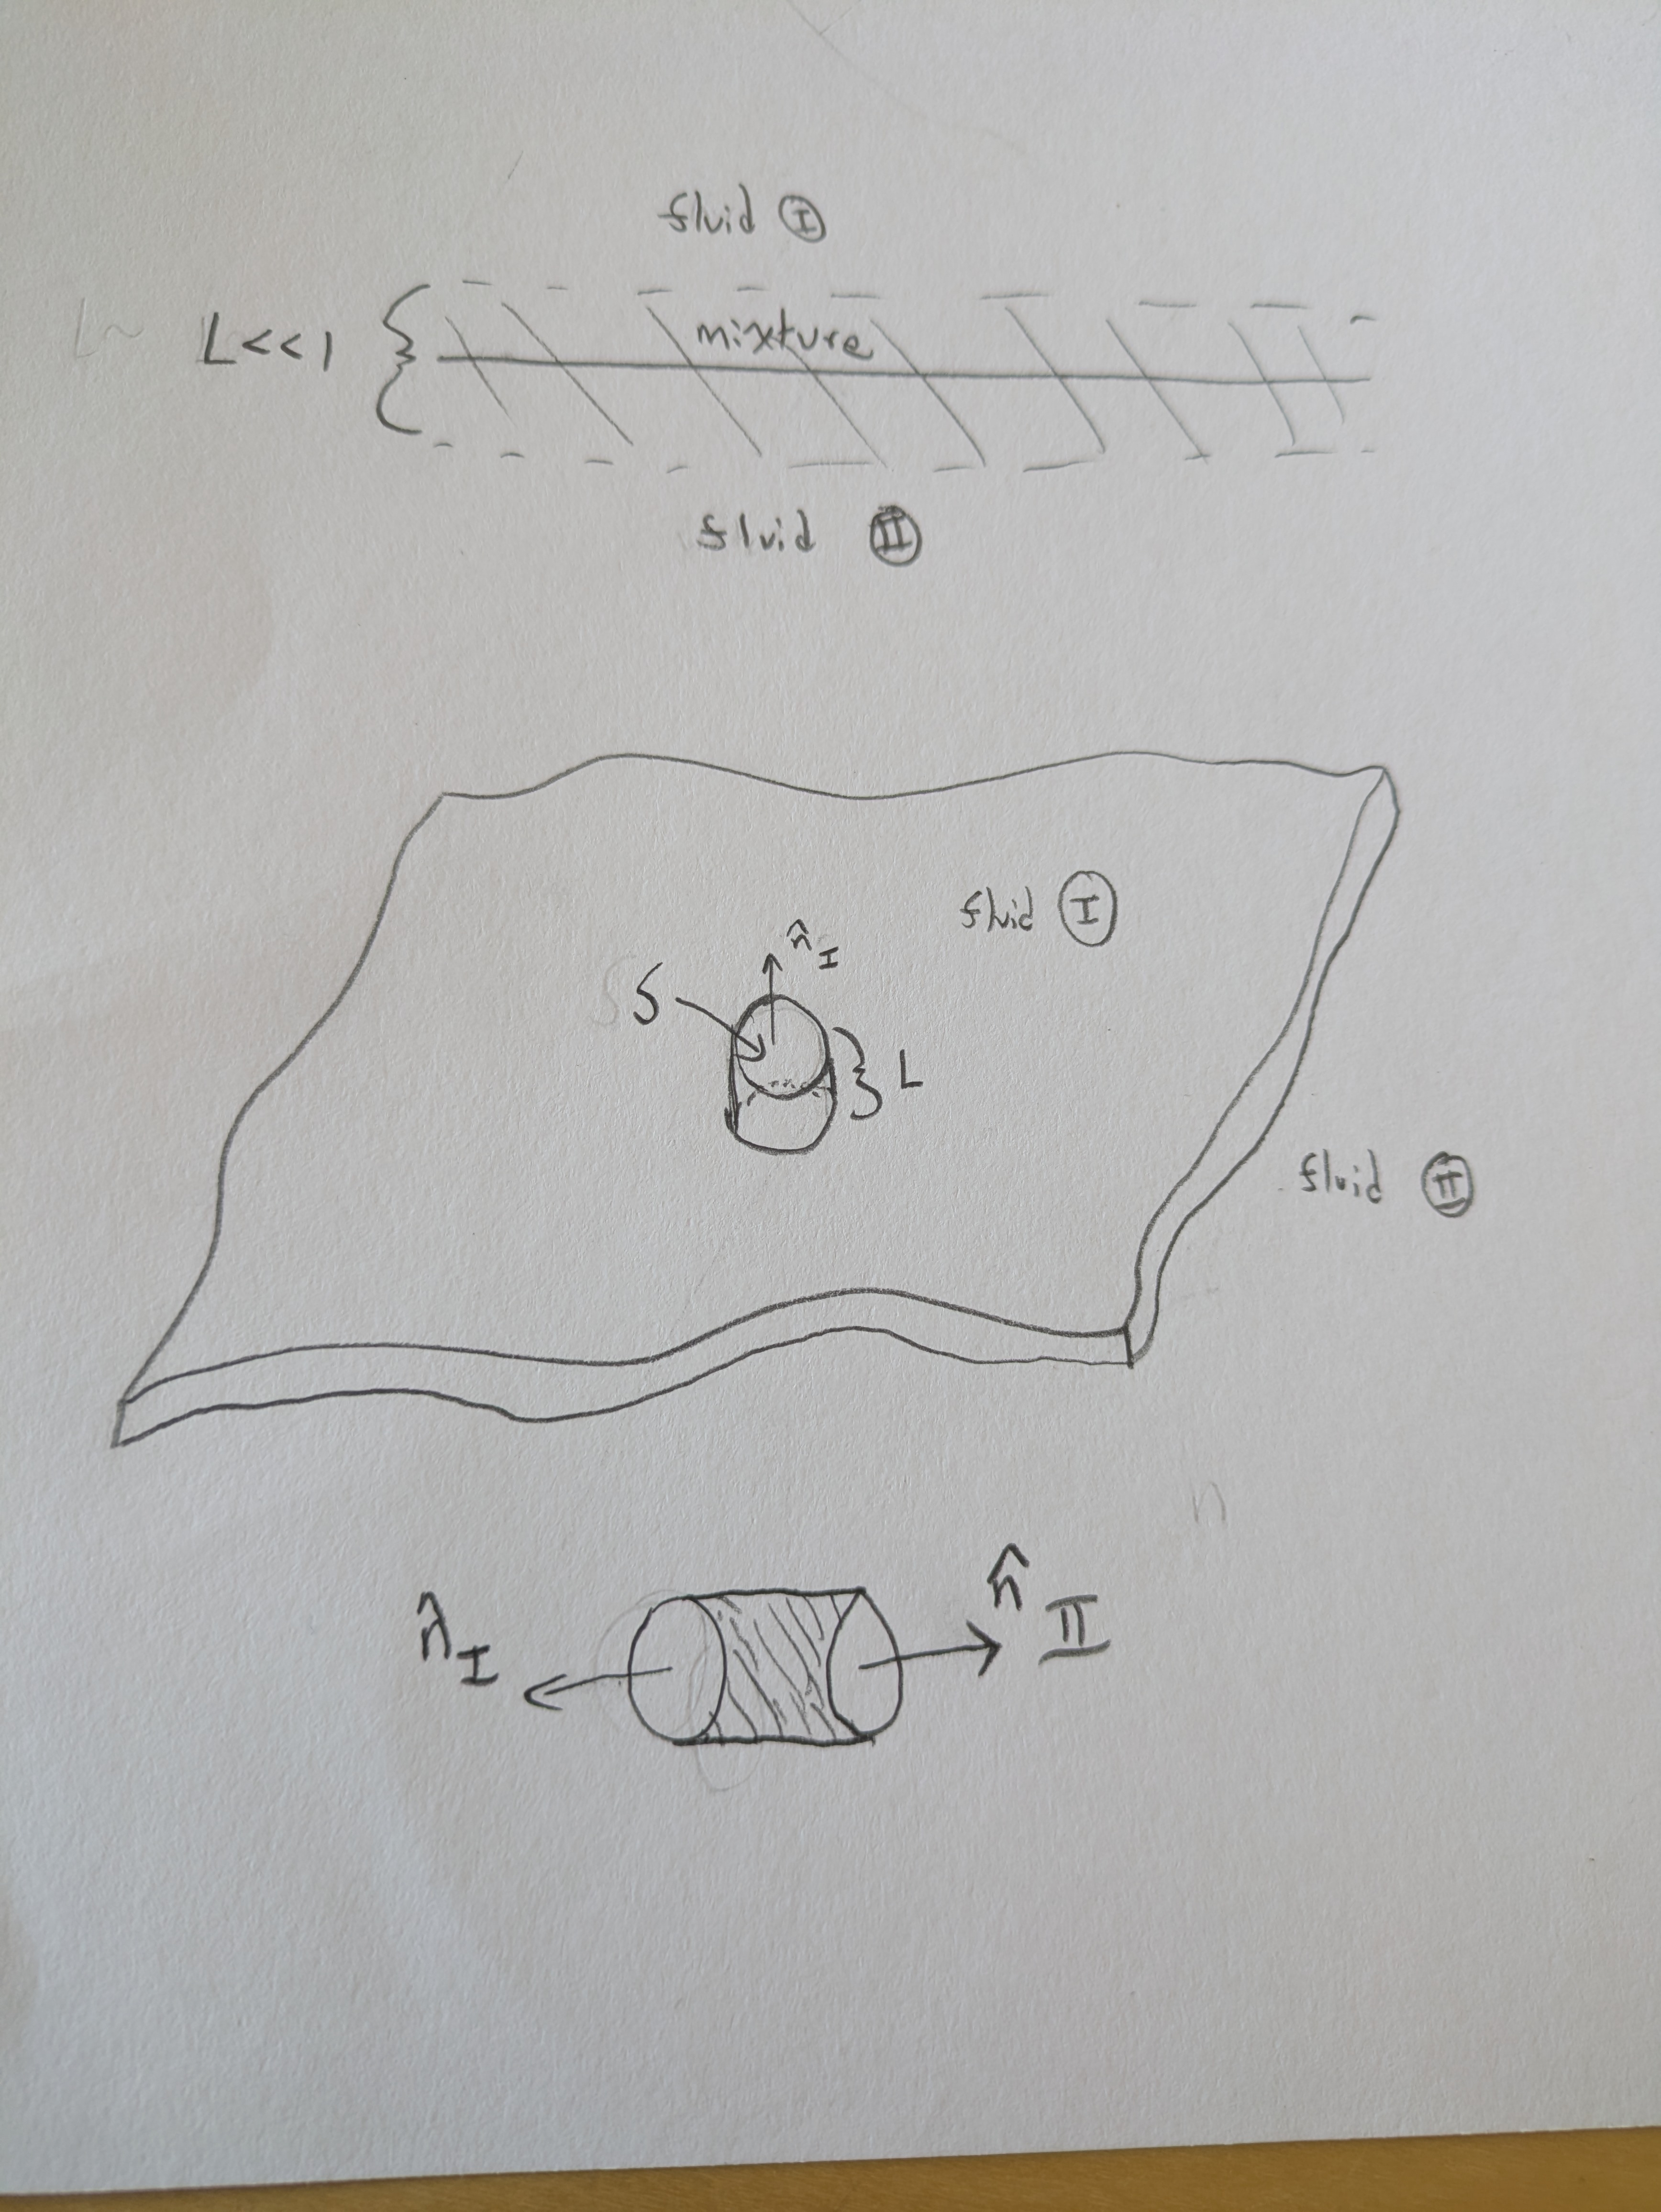 fluid Ⓘ
L<<1
mixture
fluid Ⓘ︎Ⓘ
n̂_I
fluid Ⓘ
S
L
fluid Ⓘ︎Ⓘ
n̂_I
n̂_II